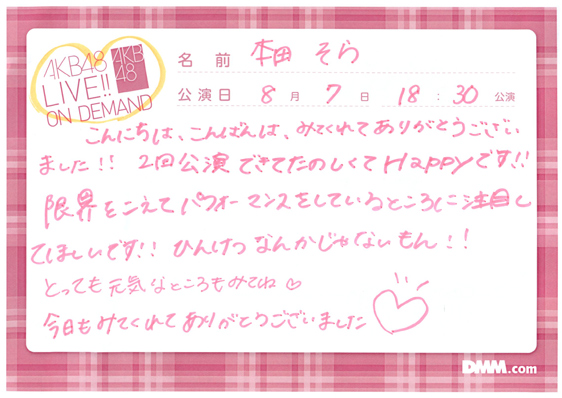 AKB48
LIVE!!
ON DEMAND
AKB
48
名前 本田 そら
公演日 8月7日 18:30 公演
こんにちは、こんばんは、みてくれてありがとうござい
ました!! 2回公演できてたのしくてHappyです!!
限界をこえてパフォーマンスをしているところに注目し
てほしいです!! ひんけつなんかじゃないもん!!
とっても元気なところもみてね♡
今日もみてくれてありがとうございました
DMM.com